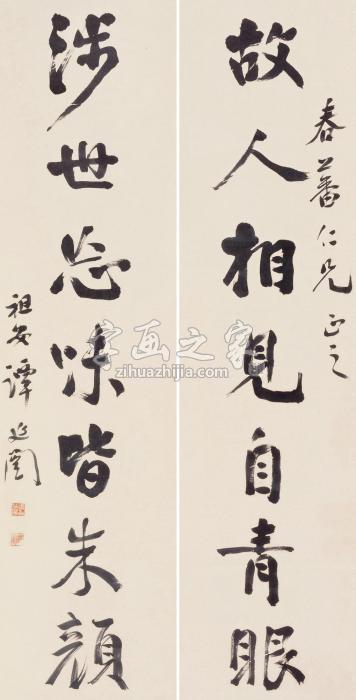 春蕃仁兄正之
故人相見自青眼
涉世忘味皆朱顏
祖安譚延闓
字画之家
zihuazhijia.com